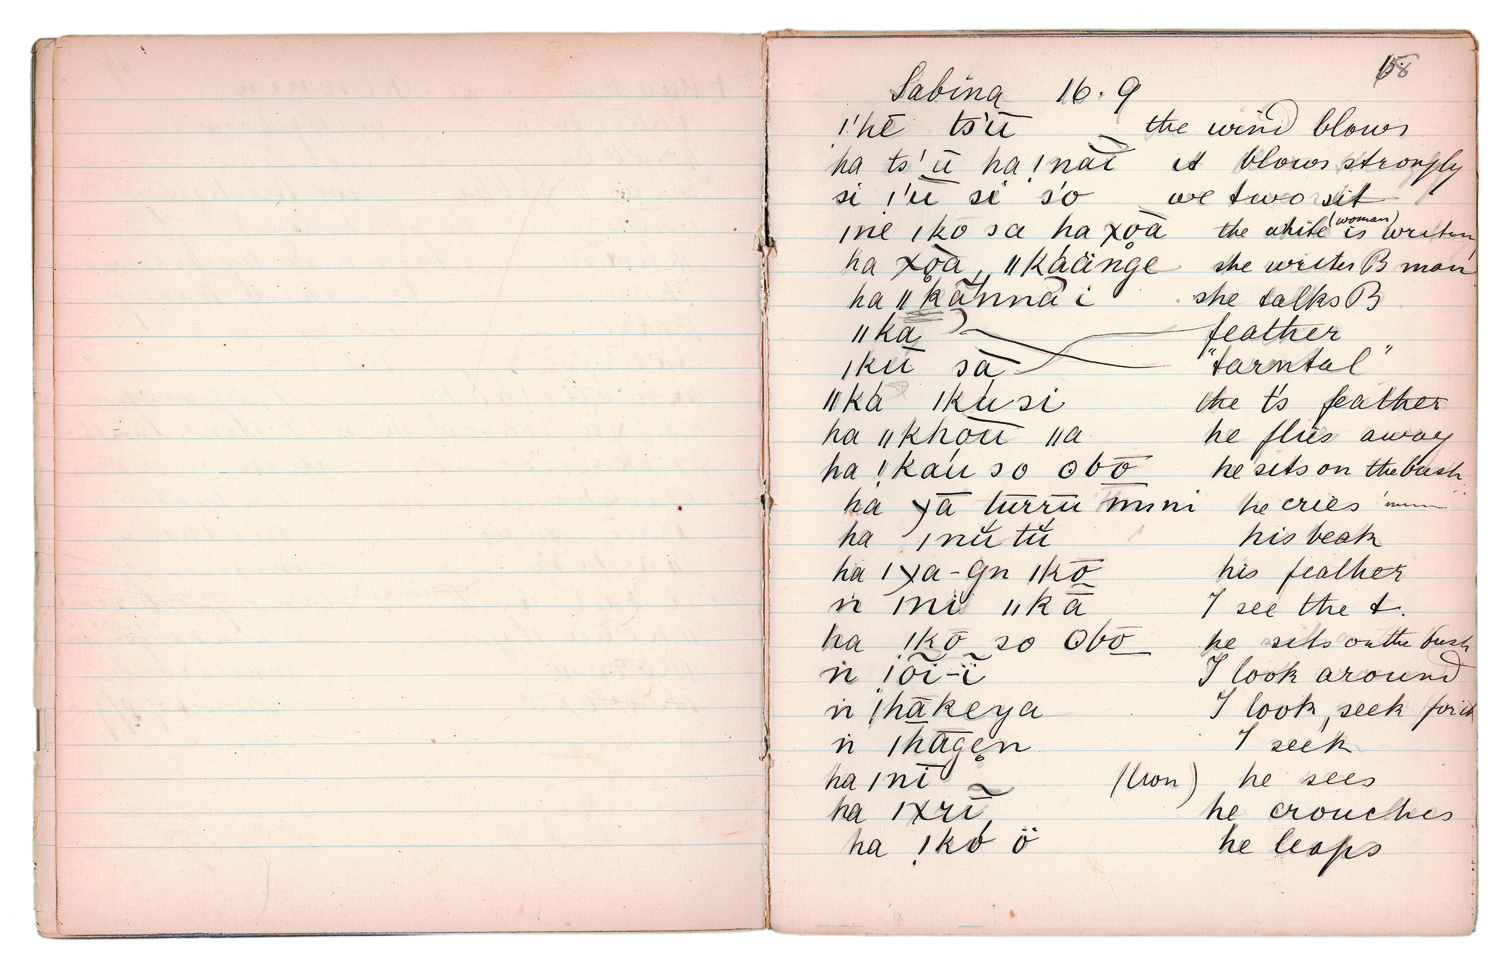 158
Sabina 16.9
!'hē ts'ū the wind blows
ha ts'ū ha !nāĩ it blows strongly
si !'ū si s'o we two sit
ǀne ǀkō sa ha xōā the white (woman) is writing
ha xōā, ǁkáänge she writes B man
ha ǁkãnnã i she talks B
ǁka feather
ǀkū sā "tarntal"
ǁká ǀkúsi the t's feather
ha ǁkhōū ǁa he flies away
ha !kaú so ʘbō he sits on the bush
ha χā turrū m̄mni he cries
ha ǀnŭ tŭ his beak
ha ǀχa-gn ǀkō his feather
ṅ ǀni ǁkā I see the t.
ha !kō so ʘbō he sits on the bush
ṅ ǀõĩ-ĩ I look around
ṅ ǀhākeya I look, seek for it
ṅ ǀhāgen I seek
ha ǀnī (lion) he sees
ha ǀxrĩ, he crouches
ha !kó ö he leaps